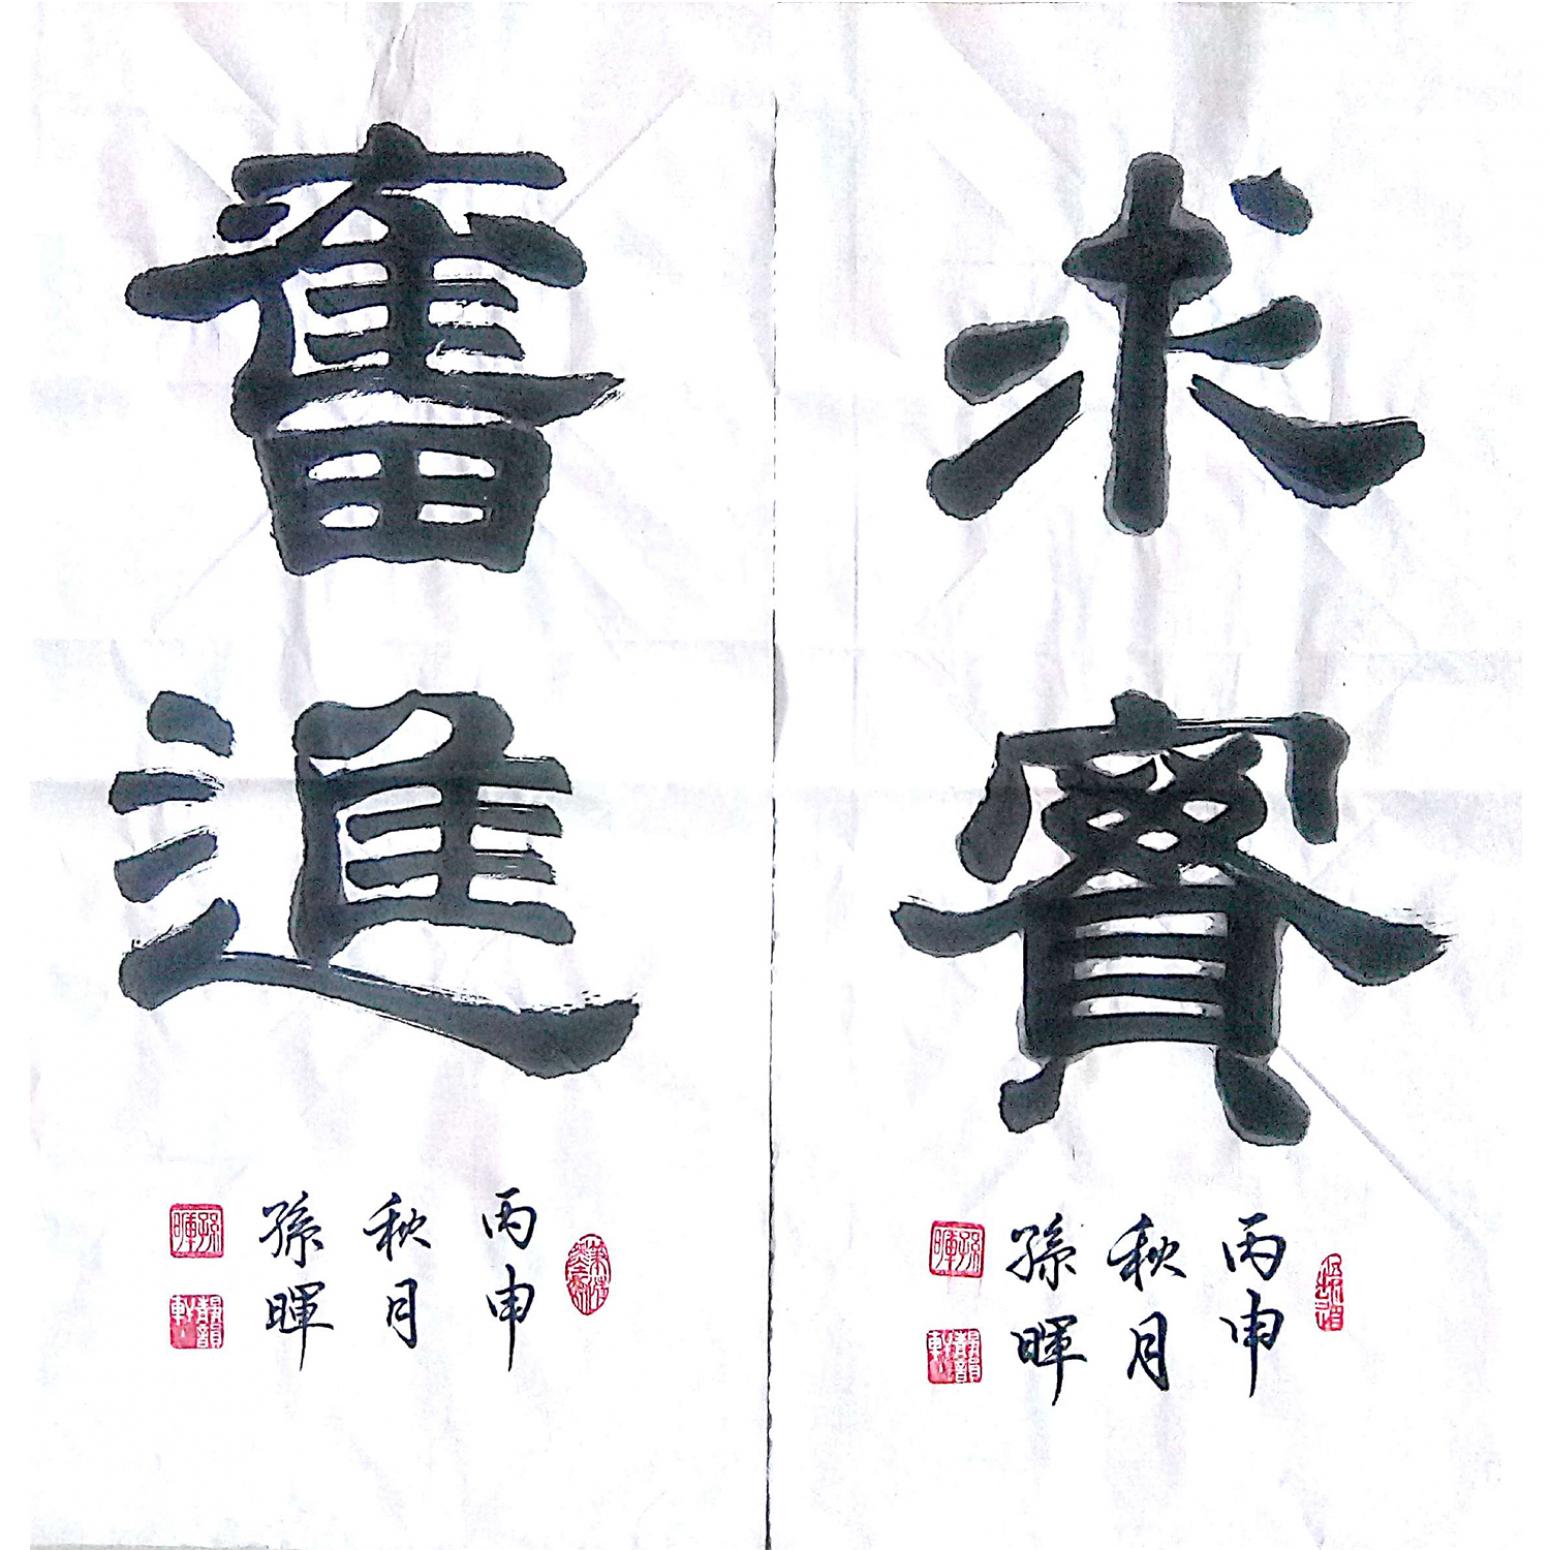 求實
丙申
秋月
孫暉
孫暉
奮進
丙申
秋月
孫暉
孫暉